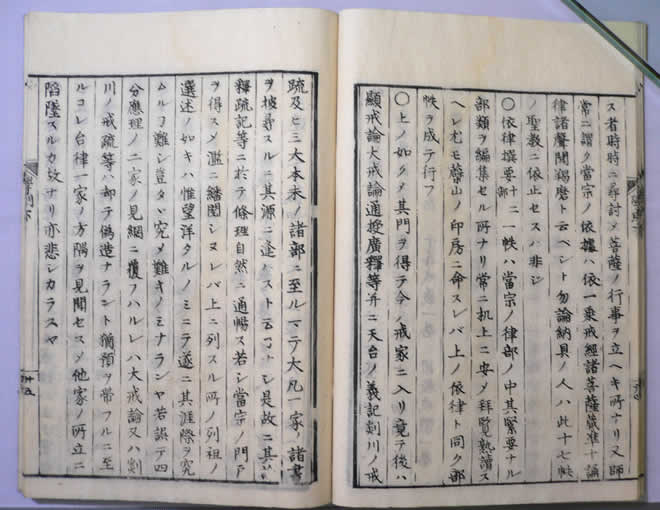 ス者時時ニ尋討メ菩薩ノ行事ヲ立ヘキ所ナリ又師
常ニ謂ク當宗ノ依據ハ依一乗戒經諸菩薩藏準十誦
律諸聲聞羯磨ト云ベシト勿論納具ノ人ハ此十七帙
ノ聖教ニ依止セスハ非シ
〇依律撰要十二一帙ハ當宗ノ律部ノ中其緊要ナル
部類ヲ編集セル所ナリ常ニ机上ニ安メ拜覽熟讀ス
ヘシ尤モ叡山ノ印房ニ命スレバ上ノ依律ト同ク部
帙ヲ成テ行フ
〇上ノ如クメ其門ヲ得テ今ノ戒家ニ入リ竟テ後ハ
顯戒論大戒論通授廣釋等并ニ天台ノ義記剡川ノ戒
疏及ヒ三大本末ノ諸部ニ至ルマテ大凡一家ノ諸書
ヲ披尋スルニ其源ニ逢ハスト云フナシ是故ニ其
釋疏記等ニ於テ條理自然ニ通暢ス若シ當宗ノ門戸
ヲ得スメ濫ニ繙閲シヌレバ上ニ列スル所ノ列祖ノ
選述ノ如キハ惟望洋タルノミニテ遂ニ其涯際ヲ究
ムルヿ難シ豈タヽ究メ難キノミナランヤ若誤テ四
分應理ノ二家ノ見網ニ覆フハルレハ大戒論又ハ剡
川ノ戒疏等ハ却テ偽造ナラント猶預ヲ帯フルニ至
ルコレ台律一家ノ方隅ヲ見聞セスメ他家ノ所立ニ
陷墜スルカ故ナリ亦悲シカラスヤ